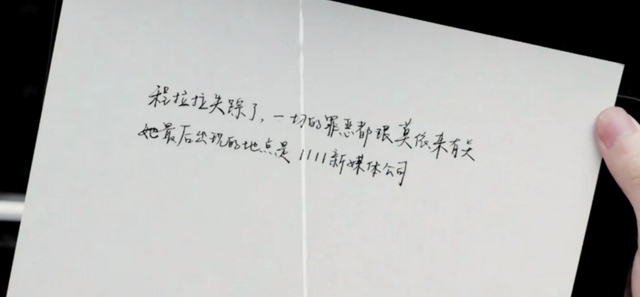 程拉拉失踪了，一切的罪恶都跟莫依来有关
她最后出现的地点是1111新媒体公司